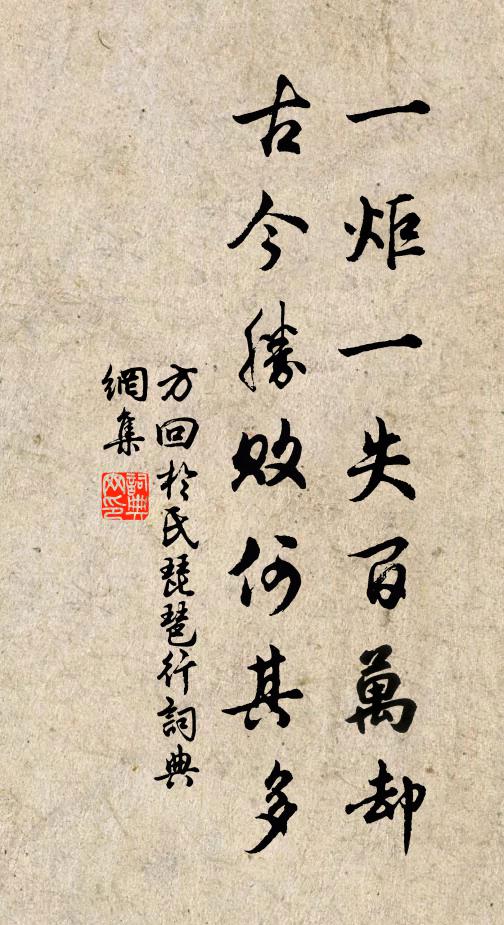 一炬一失百萬却
古今勝敗何其多
方回於氏琵琶行詞典
網集
詞典
網印